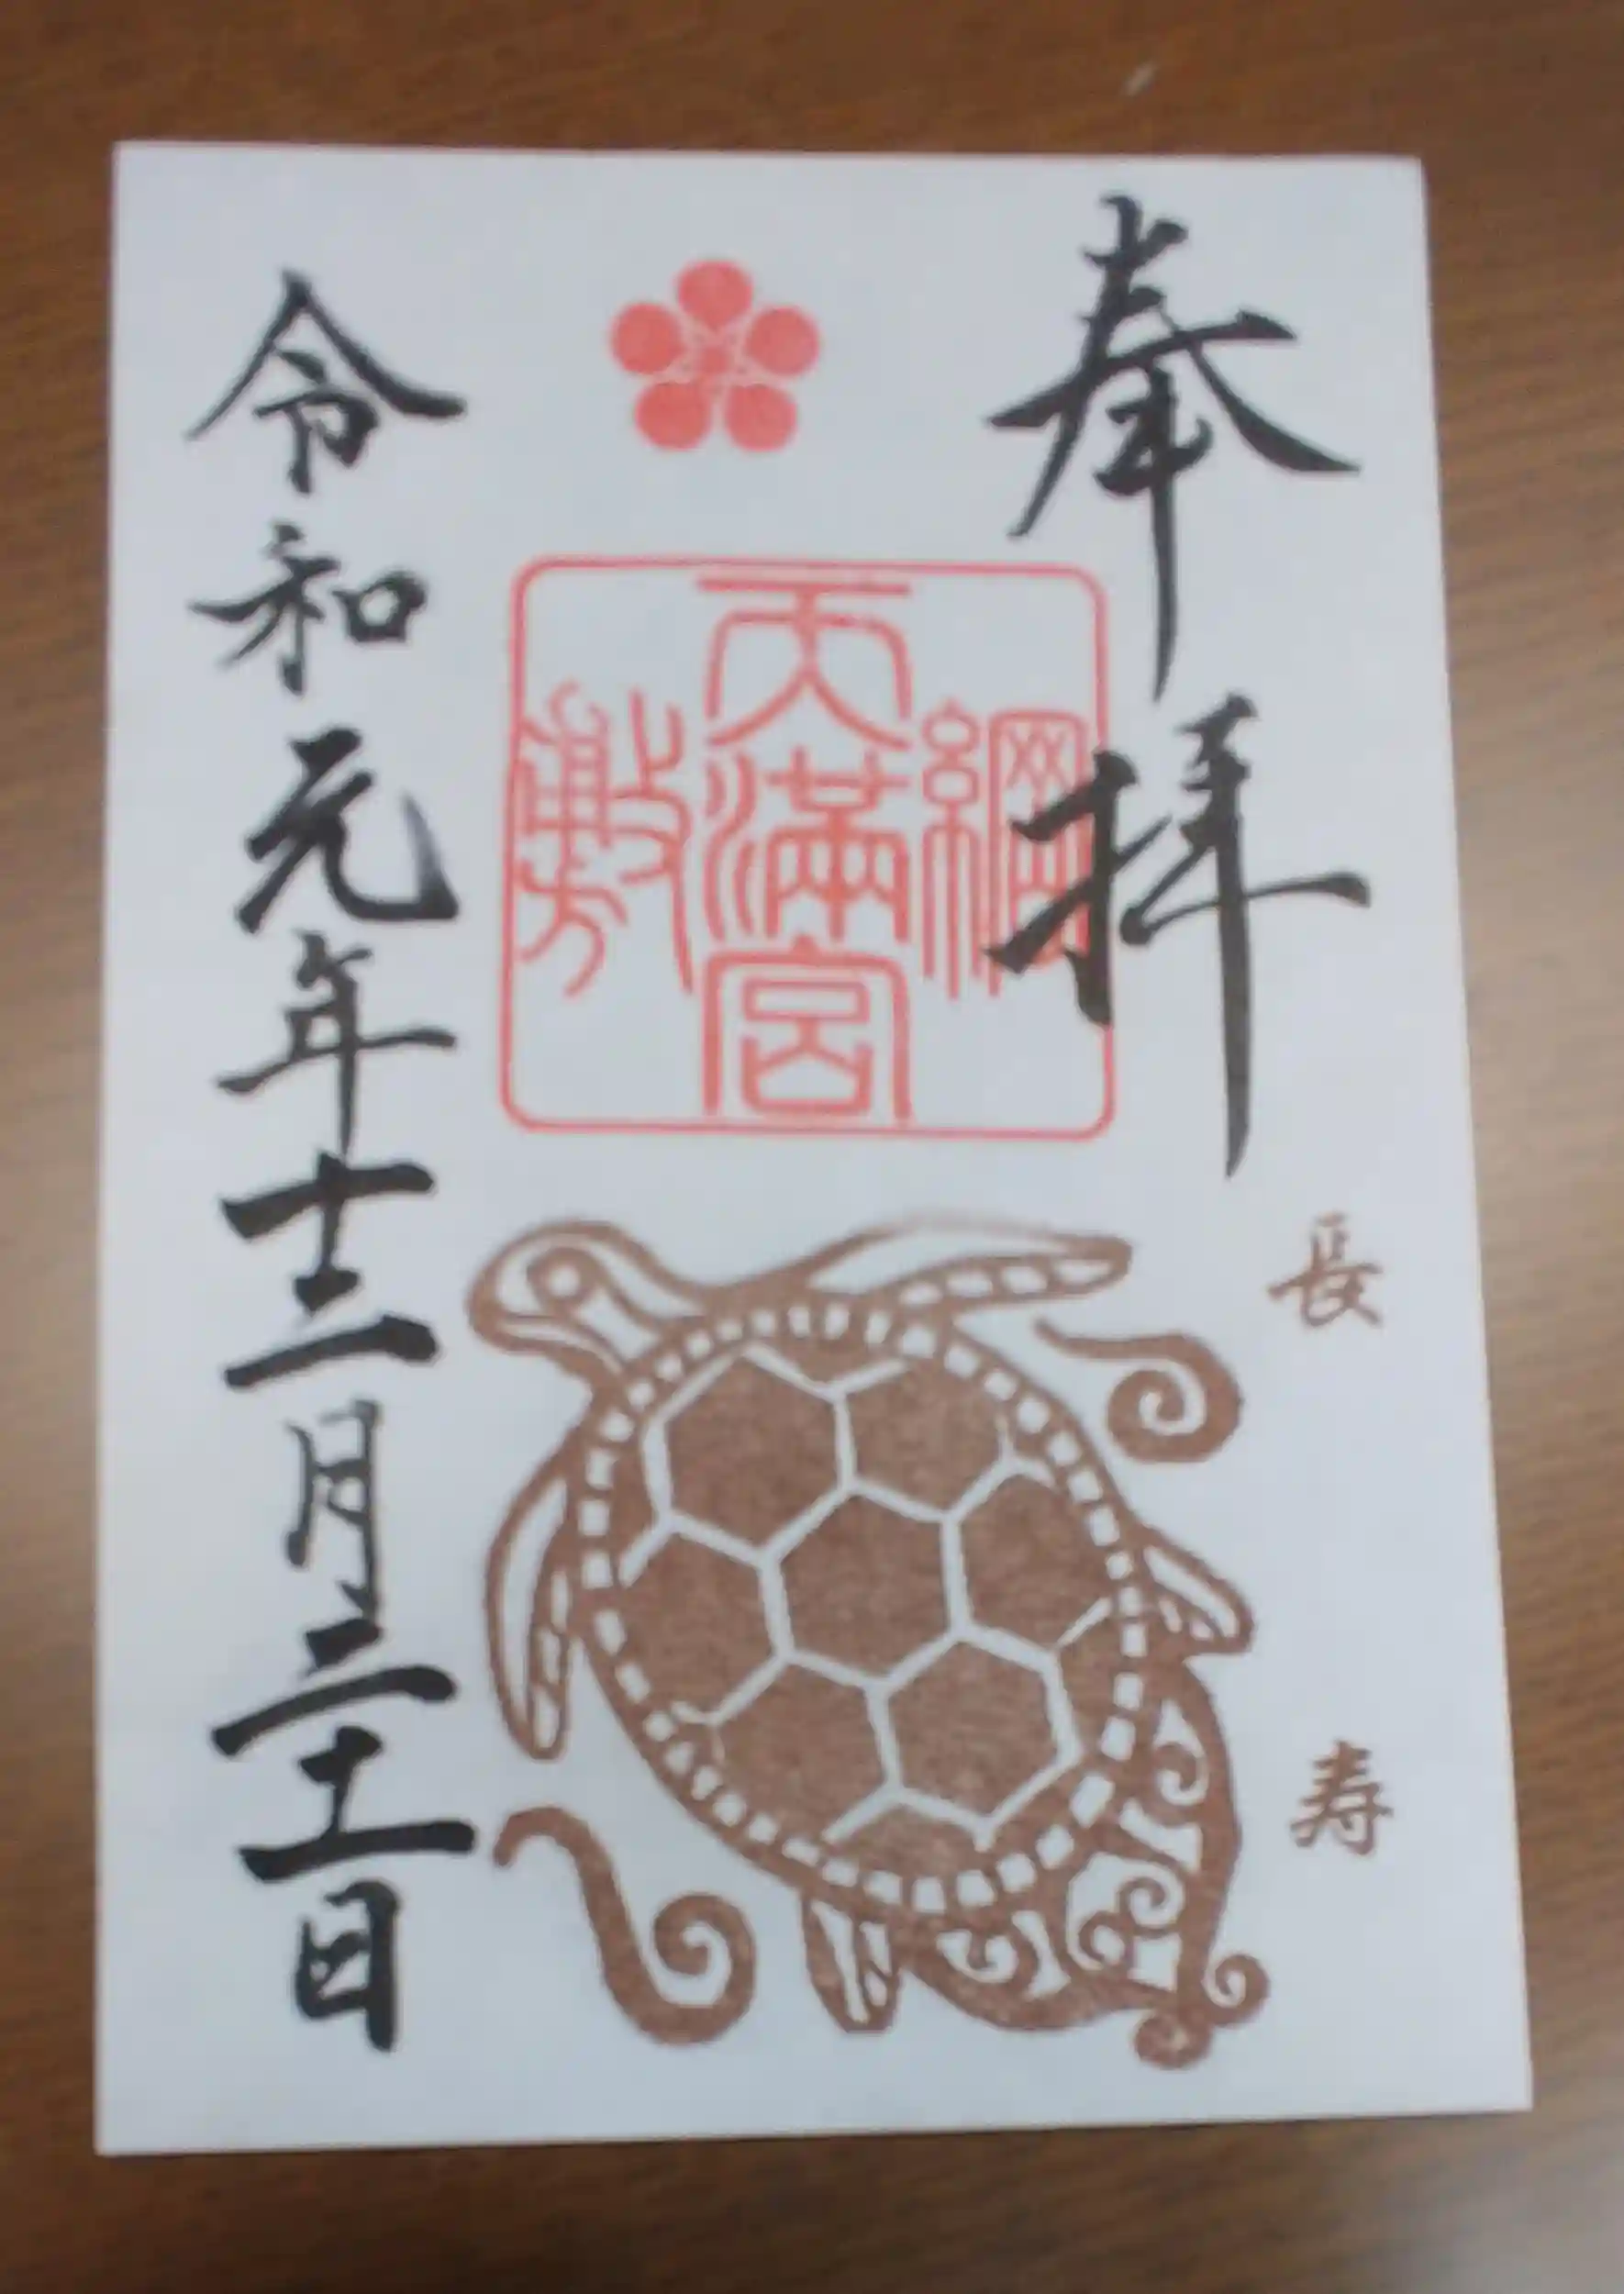 奉拝
長寿
綱敷天満宮
令和元年十二月二十一日